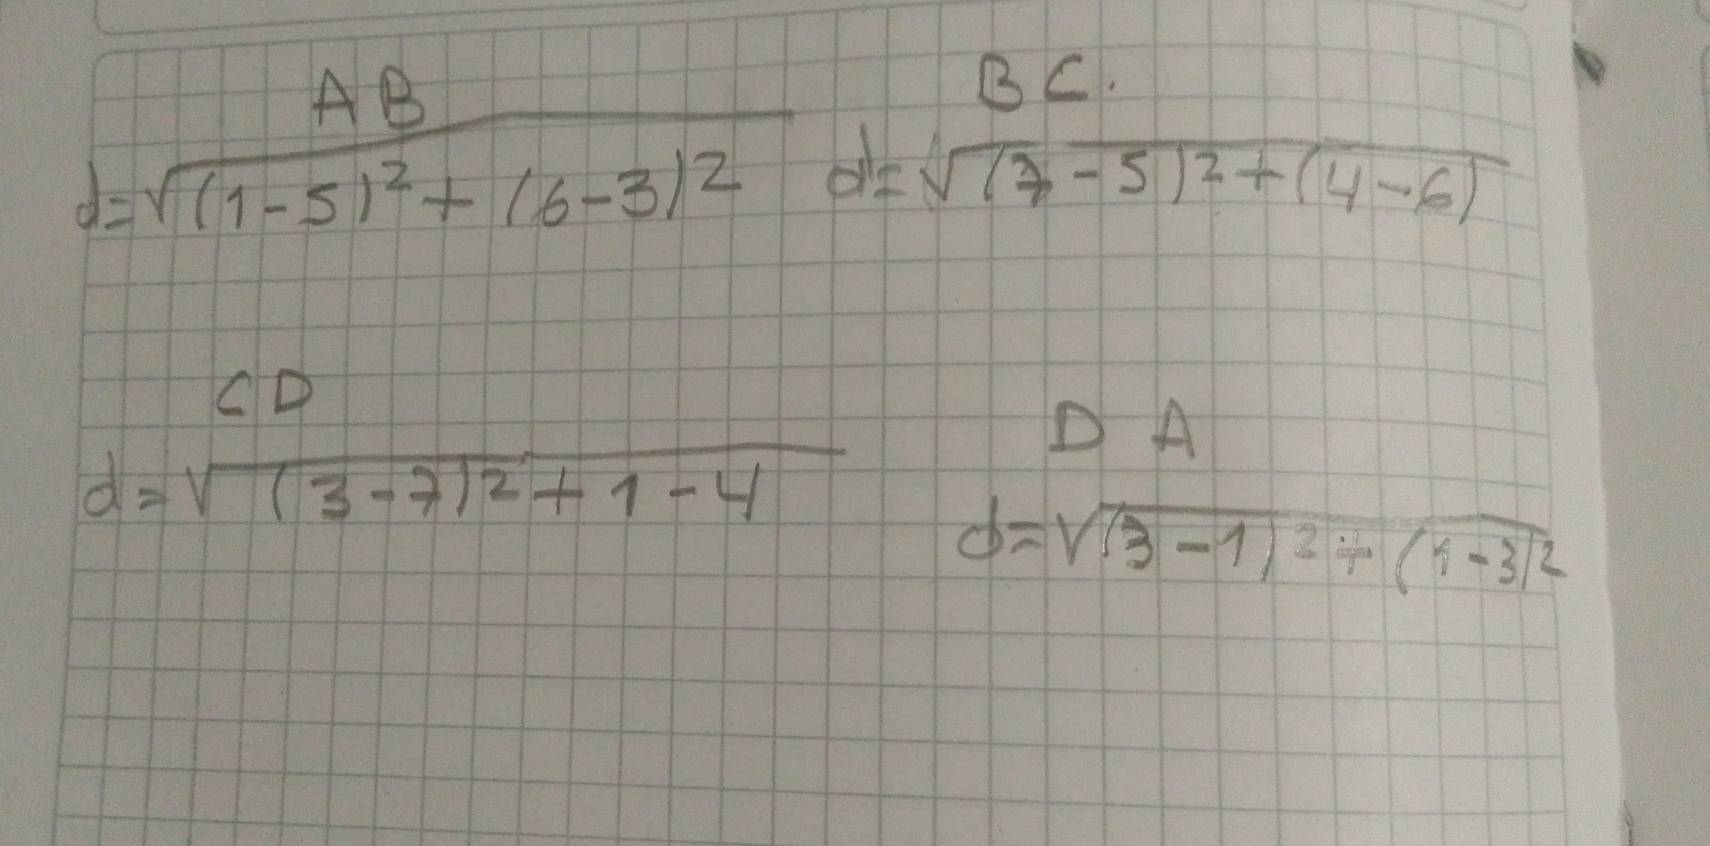 A B
d=√(1-5)²+(6-3)²
B C.
d=√(7-5)²+(4-6)
C D
d=√(3-7)²+1-4
D A
d=√(3-1)²+(1-3)²